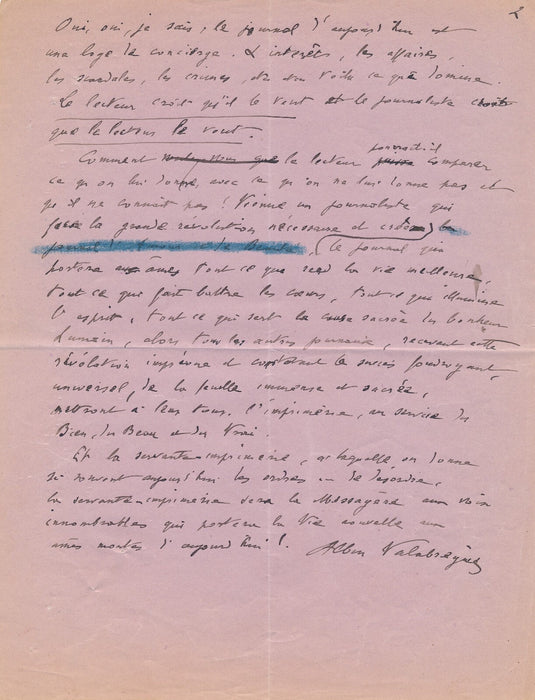 2
Oui, oui, je sais; le journal d'aujourd'hui est
une loge de concierge. L'intérêts, les affaires,
les scandales, les crimes, voilà ce qui domine.
Le lecteur croit qu'il le veut et le journaliste croit
que le lecteur le veut.
pourrait-il
Comment le lecteur comparer
ce qu'on lui donne, avec ce qu'on ne lui donne pas et
qu'il ne connait pas! Vienne un journaliste qui
fasse la grande révolution nécessaire et crée le
(le journal qui
portera aux âmes tout ce que rend la vie meilleure,
tout ce qui fait battre les cœurs, tout ce qui illumine
l'esprit, tout ce qui sert la cause sacrée du bonheur
humain, alors tous les autres journaux, recevant cette
révolution imprévue et constatant le succès foudroyant,
universel, de la feuille immense et sacrée,
mettront à leur tour, l'imprimerie, au service du
Bien, du Beau et du Vrai.
Et la servante-imprimerie, à laquelle on donne
si souvent aujourd'hui les ordres de désordre,
la servante-imprimerie sera la Messagère aux voix
innombrables qui portera la Vie nouvelle aux
âmes mortes d'aujourd'hui!
Albin Valabrègue